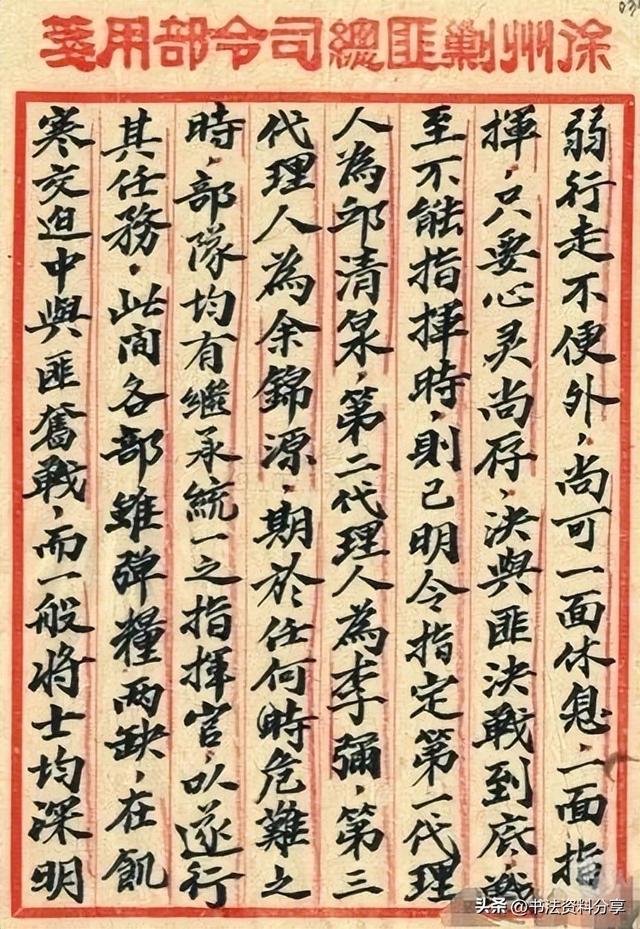 徐州剿匪總司令部用箋
弱行走不便外，尚可一面休息，一面指
揮，只要心灵尚存，決與匪決戰到底，戰
至不能指揮時，則已明令指定第一代理
人為邱清泉，第二代理人為李彌，第三
代理人為余錦源，期於任何時危難之
時，部隊均有繼承統一之指揮官，以遂行
其任務，此間各部雖弹糧兩缺，在飢
寒交迫中與匪奮戰，而一般将士均深明
头条 @书法资料分享